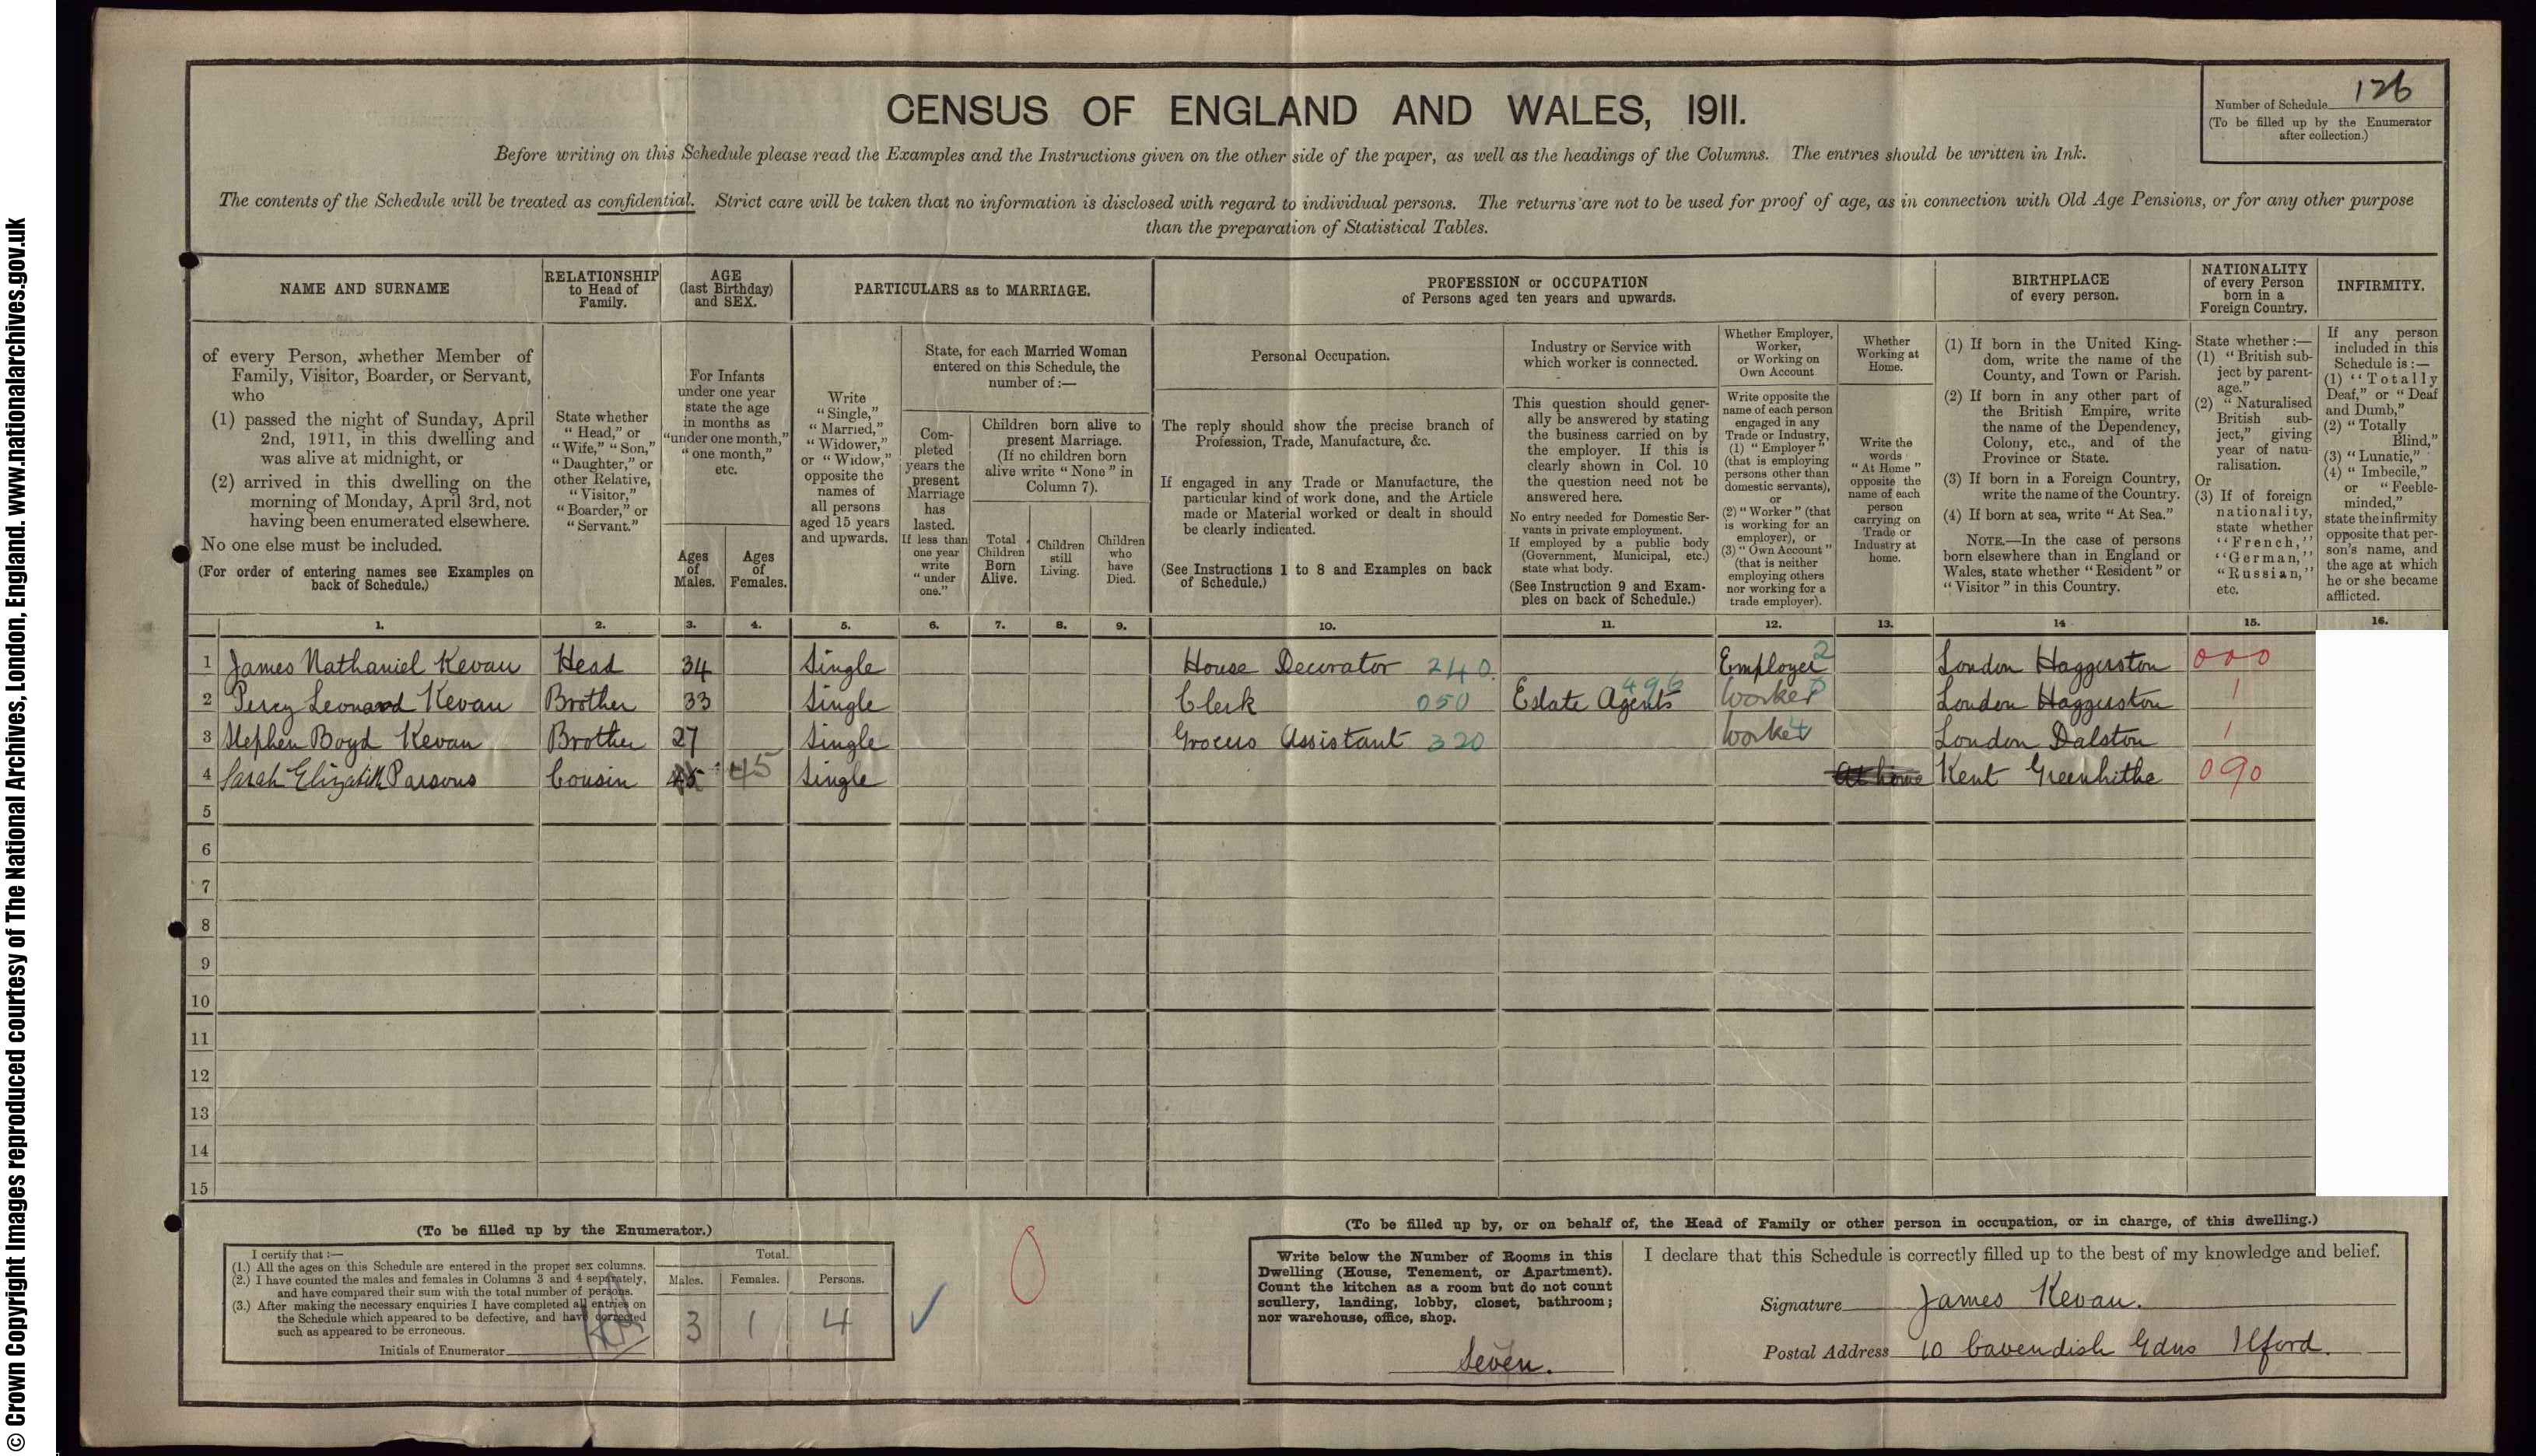 © Crown Copyright Images reproduced courtesy of The National Archives, London, England. www.nationalarchives.gov.uk
CENSUS OF ENGLAND AND WALES, 1911.
Number of Schedule 126
(To be filled up by the Enumerator after collection.)
Before writing on this Schedule please read the Examples and the Instructions given on the other side of the paper, as well as the headings of the Columns. The entries should be written in Ink.
The contents of the Schedule will be treated as confidential. Strict care will be taken that no information is disclosed with regard to individual persons. The returns are not to be used for proof of age, as in connection with Old Age Pensions, or for any other purpose
than the preparation of Statistical Tables.
NAME AND SURNAME
of every Person, whether Member of
Family, Visitor, Boarder, or Servant,
who
(1) passed the night of Sunday, April
2nd, 1911, in this dwelling and
was alive at midnight, or
(2) arrived in this dwelling on the
morning of Monday, April 3rd, not
having been enumerated elsewhere.
No one else must be included.
(For order of entering names see Examples on
back of Schedule.)
RELATIONSHIP
to Head of
Family.
State whether
"Head," or
"Wife," "Son,"
"Daughter," or
other Relative,
"Visitor,"
"Boarder," or
"Servant."
AGE
(last Birthday)
and SEX.
For Infants
under one year
state the age
in months as
"under one month,"
"one month,"
etc.
Ages
of
Males.
Ages
of
Females.
PARTICULARS as to MARRIAGE.
Write
"Single,"
"Married,"
"Widower,"
or "Widow,"
opposite the
names of
all persons
aged 15 years
and upwards.
State, for each Married Woman
entered on this Schedule, the
number of :—
Com-
pleted
years the
present
Marriage
has
lasted.
If less than
one year
write
"under
one."
Children born alive to
present Marriage.
(If no children born
alive write "None" in
Column 7).
Total
Children
Born
Alive.
Children
still
Living.
Children
who
have
Died.
PROFESSION or OCCUPATION
of Persons aged ten years and upwards.
Personal Occupation.
The reply should show the precise branch of
Profession, Trade, Manufacture, &c.
If engaged in any Trade or Manufacture, the
particular kind of work done, and the Article
made or Material worked or dealt in should
be clearly indicated.
(See Instructions 1 to 8 and Examples on back
of Schedule.)
Industry or Service with
which worker is connected.
This question should gener-
ally be answered by stating
the business carried on by
the employer. If this is
clearly shown in Col. 10
the question need not be
answered here.
No entry needed for Domestic Ser-
vants in private employment.
If employed by a public body
(Government, Municipal, etc.)
state what body.
(See Instruction 9 and Exam-
ples on back of Schedule.)
Whether Employer,
Worker,
or Working on
Own Account
Write opposite the
name of each person
engaged in any
Trade or Industry,
(1) "Employer"
(that is employing
persons other than
domestic servants),
or
(2) "Worker" (that
is working for an
employer), or
(3) "Own Account"
(that is neither
employing others
nor working for a
trade employer).
Whether
Working at
Home.
Write the
words
"At Home"
opposite the
name of each
person
carrying on
Trade or
Industry at
home.
BIRTHPLACE
of every person.
(1) If born in the United King-
dom, write the name of the
County, and Town or Parish.
(2) If born in any other part of
the British Empire, write
the name of the Dependency,
Colony, etc., and of the
Province or State.
(3) If born in a Foreign Country,
write the name of the Country.
(4) If born at sea, write "At Sea."
NOTE.—In the case of persons
born elsewhere than in England or
Wales, state whether "Resident" or
"Visitor" in this Country.
NATIONALITY
of every Person
born in a
Foreign Country.
State whether :—
(1) "British sub-
ject by parent-
age."
(2) "Naturalised
British sub-
ject," giving
year of natu-
ralisation.
Or
(3) If of foreign
nationality,
state whether
"French,"
"German,"
"Russian,"
etc.
INFIRMITY.
If any person
included in this
Schedule is :—
(1) "Totally
Deaf," or "Deaf
and Dumb,"
(2) "Totally
Blind,"
(3) "Lunatic,"
(4) "Imbecile,"
or "Feeble-
minded,"
state the infirmity
opposite that per-
son's name, and
the age at which
he or she became
afflicted.
1. 2. 3. 4. 5. 6. 7. 8. 9. 10. 11. 12. 13. 14 15. 16.
1 James Nathaniel Kevan Head 34 Single House Decorator 240 Employer 2 London Haggerston 000
2 Percy Leonard Kevan Brother 33 Single Clerk 050 Estate Agents 496 Worker London Haggerston 1
3 Stephen Boyd Kevan Brother 27 Single Grocers Assistant 320 Worker London Dalston 1
4 Sarah Elizabeth Parsons Cousin 45 45 Single At home Kent Greenhithe 090
5
6
7
8
9
10
11
12
13
14
15
(To be filled up by the Enumerator.)
I certify that :—
(1.) All the ages on this Schedule are entered in the proper sex columns.
(2.) I have counted the males and females in Columns 3 and 4 separately,
and have compared their sum with the total number of persons.
(3.) After making the necessary enquiries I have completed all entries on
the Schedule which appeared to be defective, and have corrected
such as appeared to be erroneous.
Initials of Enumerator
Total.
Males. Females. Persons.
3 1 4
0
(To be filled up by, or on behalf of, the Head of Family or other person in occupation, or in charge, of this dwelling.)
Write below the Number of Rooms in this
Dwelling (House, Tenement, or Apartment).
Count the kitchen as a room but do not count
scullery, landing, lobby, closet, bathroom;
nor warehouse, office, shop.
Seven.
I declare that this Schedule is correctly filled up to the best of my knowledge and belief.
Signature James Kevan.
Postal Address 10 Cavendish Gdns Ilford.